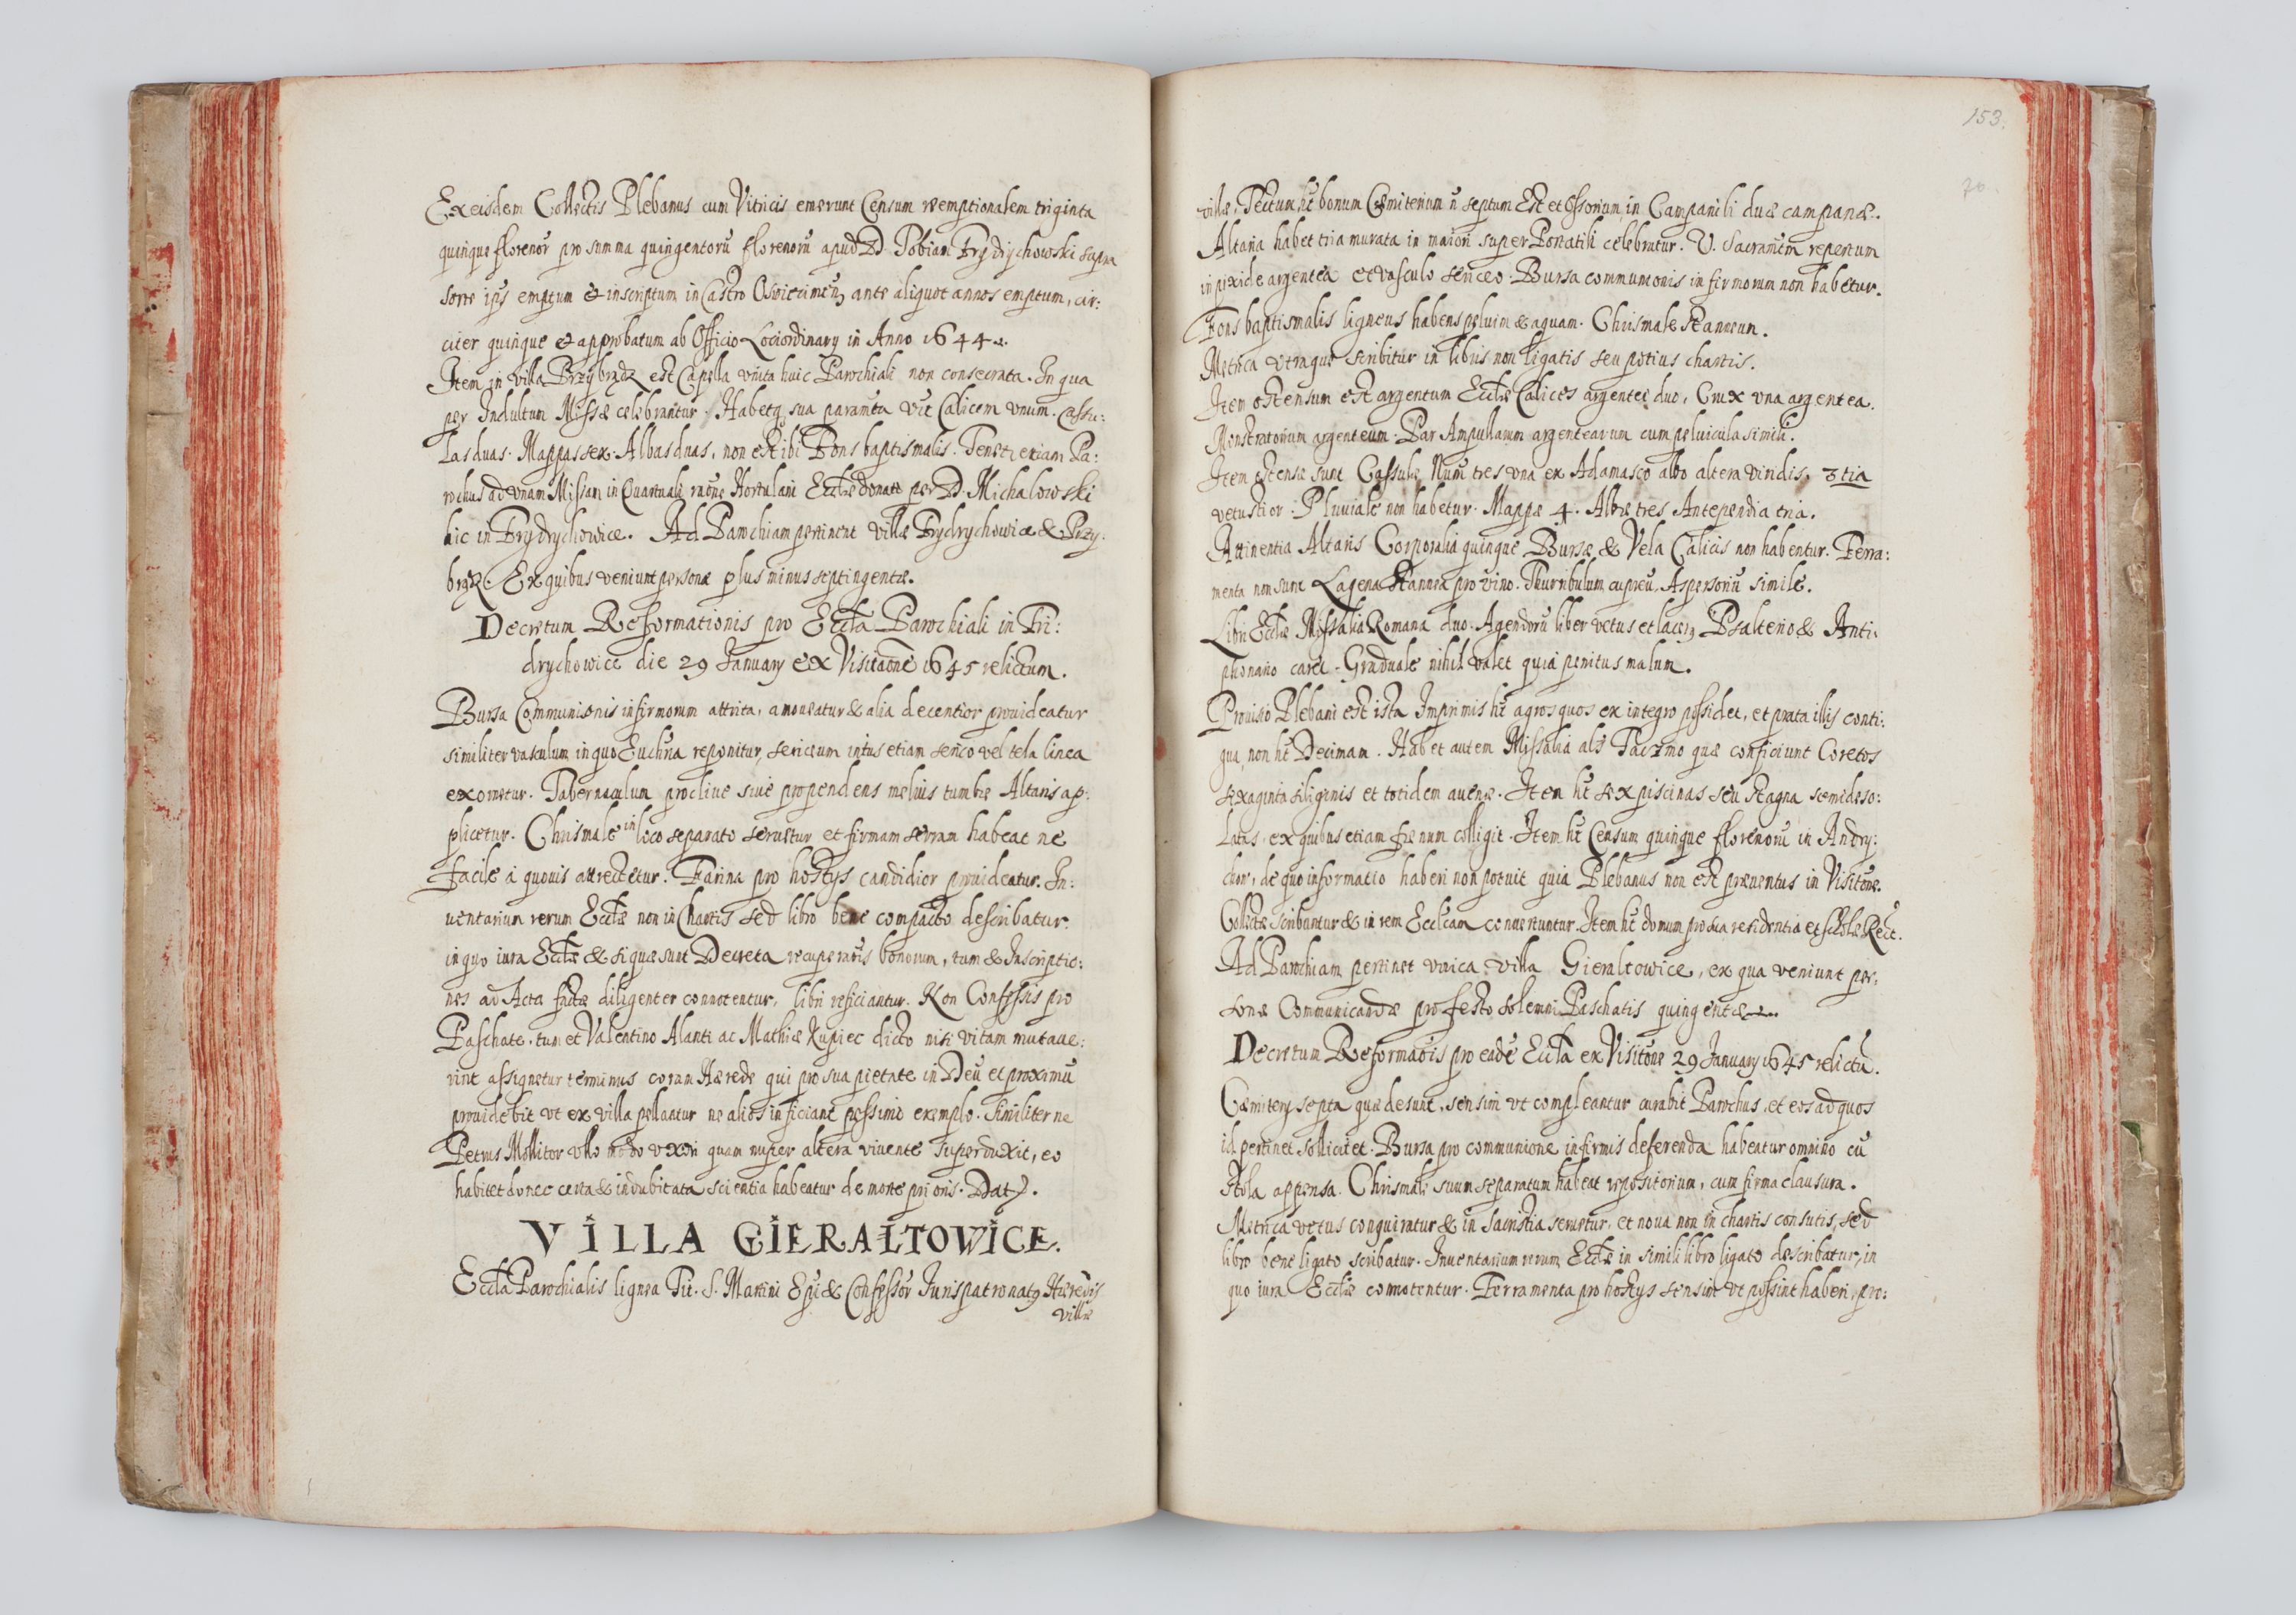 Ex eisdem Collectis Plebanus cum Vitricis emerunt Censum reemptionalem triginta
quinque florenor pro summa quingentorū florenorū apud D. Tobiam Frydrychowski supra
sorte ips emptum & inscriptum in Castro Oswiecimen ante aliquot annos emptum, cir:
citer quinque & approbatum ab Officio Lociordinary in Anno 1644.
Item in villa Przybrądz est Capella vnita huic Parochiali non consecrata. In qua
per Indultum Missæ celebrantur. Habetq sua paramta vit Calicem vnum. Casu:
las duas. Mappas sex. Albas duas, non est ibi Fons baptismalis. Tenetr etiam Pa:
rochus ad vnam Missam in Quartuali raōne Hortulani Ecclæ donati per D. Michalowski
hic in Frydrychowice. Ad Parochiam pertinent villæ Frydrychowice & Przy:
brądz. Ex quibus veniunt personæ plus minus septingentæ.
Decretum Reformationis pro Eccla Parochiali in Fri:
drychowice die 29 January ex Visitaone 1645 relictum.
Bursa Communionis infirmorum attrita, amoueatur & alia decentior prouideatur
similiter vasculum in quo Euchna reponitur, sericeum intus etiam serico vel tela linea
exornetur. Tabernaculum procliue siue propendens melius tumbæ Altaris ap:
plicetur. Chrismale in loco separato seruetur et firmam serram habeat ne
facile a quouis attrectetur. Farina pro hostys candidior prouideatur. In:
uentarium rerum Ecclæ non in Chartis sed libro bene compacto describatur.
in quo iura Ecclæ & si quæ sunt Decreta recuperatis bonorum, tum & Inscriptio:
nes ad Acta factæ diligenter connotentur, libri reficiantur. Non Confessis pro
Paschate, tum et Valentino Alanti ac Mathiæ Kupiec dicto nisi vitam mutaue:
rint assignetur terminus coram Hærede qui pro sua pietate in Deū et proximū
prouidebit vt ex villa pellantur ne alios inficiant pessimo exemplo. Similiter ne
Petrus Mollitor vllo modo vxori quam nuper altera viuente superduxit, eo
habitet donec certa & indubitata scientia habeatur de morte prioris. Dat.
VILLA GIERALTOWICE.
Eccla Parochialis lignea Tit. S. Martini Epi & Confessor Jurispatronatq Hæredis
villæ
153.
70.
villæ, Tectum ht bonum Cæmiterium n septum Est et Ossorium, in Campanili duæ campanæ.
Altaria habet tria murata in maiori super Portatili celebratur. V. Sacramtm repertum
in pixide argentea et vasculo sericeo. Bursa communionis infirmorum non habetur.
Fons baptismalis ligneus habens peluim & aquam. Chrismale stanneum.
Metrica vtraque scribitur in libris non ligatis seu potius chartis.
Item ostensum est argentum Ecclæ Calices argentei duo, Crux vna argentea.
Monstratorium argenteum. Par Ampullarum argentearum cum peluicula simili.
Item ostensæ sunt Cassulæ Num tres vna ex Adamasco albo altera viridis, 3tia
vetustior. Pluuiale non habetur. Mappæ 4. Albæ tres Antependia tria.
Attinentia Altaris Corporalia quinque Bursæ & Vela Calicis non habentur. Ferra:
menta non sunt Lagena Stannea pro vino. Thurribulum cupreū, Aspersoriū simile.
Libri Ecclæ Missalia Romana duo. Agendorū liber vetus et lacerq Psalterio & Anti:
phonario caret. Graduale nihil valet quia penitus malum.
Prouisio Plebani est ista Imprimis ht agros quos ex integro possidet, et prata illis conti:
gua, non ht Decimam. Habet autem Missalia als Taczmo quæ conficiunt Coretos
sexaginta siliginis et totidem auenæ. Item ht sex piscinas seu stagna semideso:
latas, ex quibus etiam fænum colligit. Item ht Censum quinque florenorū in Andry:
chow, de quo informatio haberi non potuit quia Plebanus non est præuentus in Visitōne.
Collectæ scribuntur & in rem Ecclcam conuertuntur. Item ht domum pro sua residentia et scholæ Rect.
Ad Parochiam pertinet vnica villa Gieraltowice, ex qua veniunt per,
sonæ Communicandæ pro festo solemni Paschatis quingentæ
Decretum Reformaōis pro eadē Eccla ex Visitōne 29 January 1645 relictū.
Cæmitery septa quæ desunt, sensim vt compleantur curabit Parochus, et eos ad quos
id pertinet sollicitet. Bursa pro communione infirmis deferenda habeatur omnino cū
stola appensa. Chrismale suum separatum habeat repositorium, cum firma clausura.
Metrica vetus conquiratur & in sacristia seruetur, et noua non in chartis consutis, sed
libro bene ligato scribatur. Inuentarium rerum Ecclæ in simili libro ligato describatur, in
quo iura Ecclæ connotentur. Ferramenta pro hostys sensim vt possint haberi, pro: